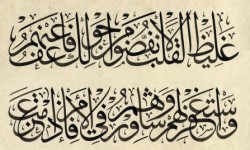 غليظ القلب لانفضوا من حولك فاعف عنهم
واستغفر لهم وشاورهم في الأمر فإذا عزمت